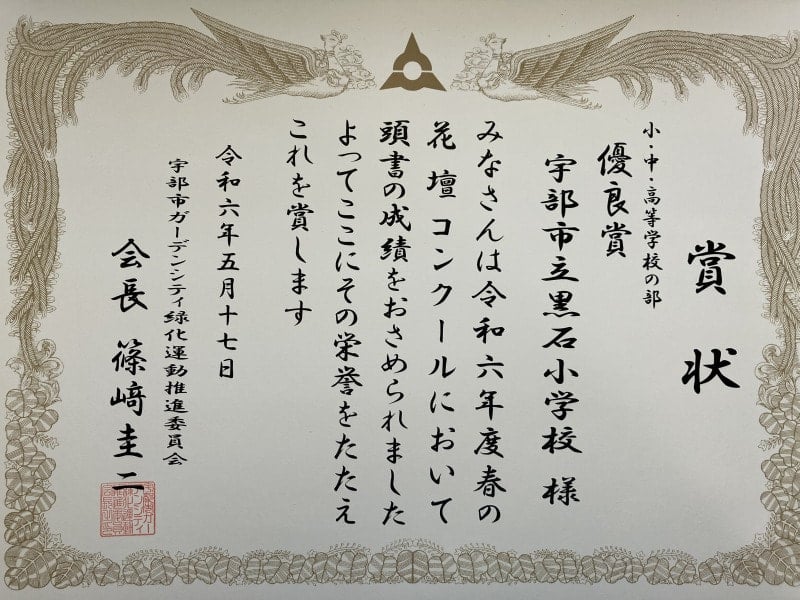 賞状
小・中・高等学校の部
優良賞
宇部市立黒石小学校 様
みなさんは令和六年度春の
花壇コンクールにおいて
頭書の成績をおさめられました
よってここにその栄誉をたたえ
これを賞します
令和六年五月十七日
宇部市ガーデンシティ緑化運動推進委員会
会長 篠﨑圭二